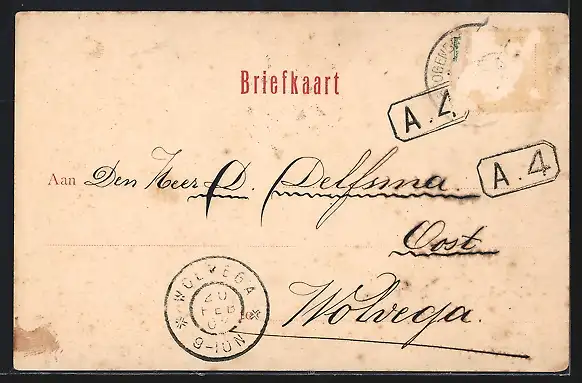 Briefkaart
A. 4
A. 4
Aan Den Heer D. Delfsma.
Oost
Wolvega.
WOLVEGA
20
FEB
9-10N